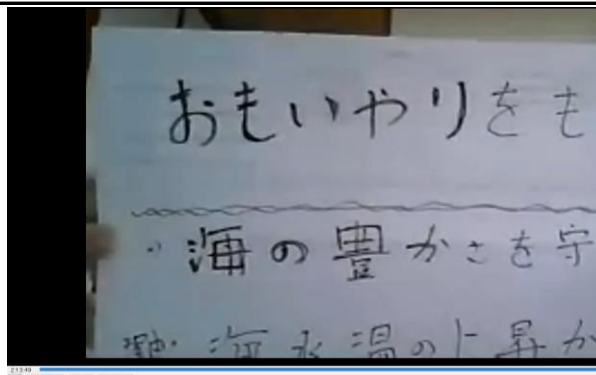 おもいやりをも
・海の豊かさを守
海水温の上昇か
2:13:49